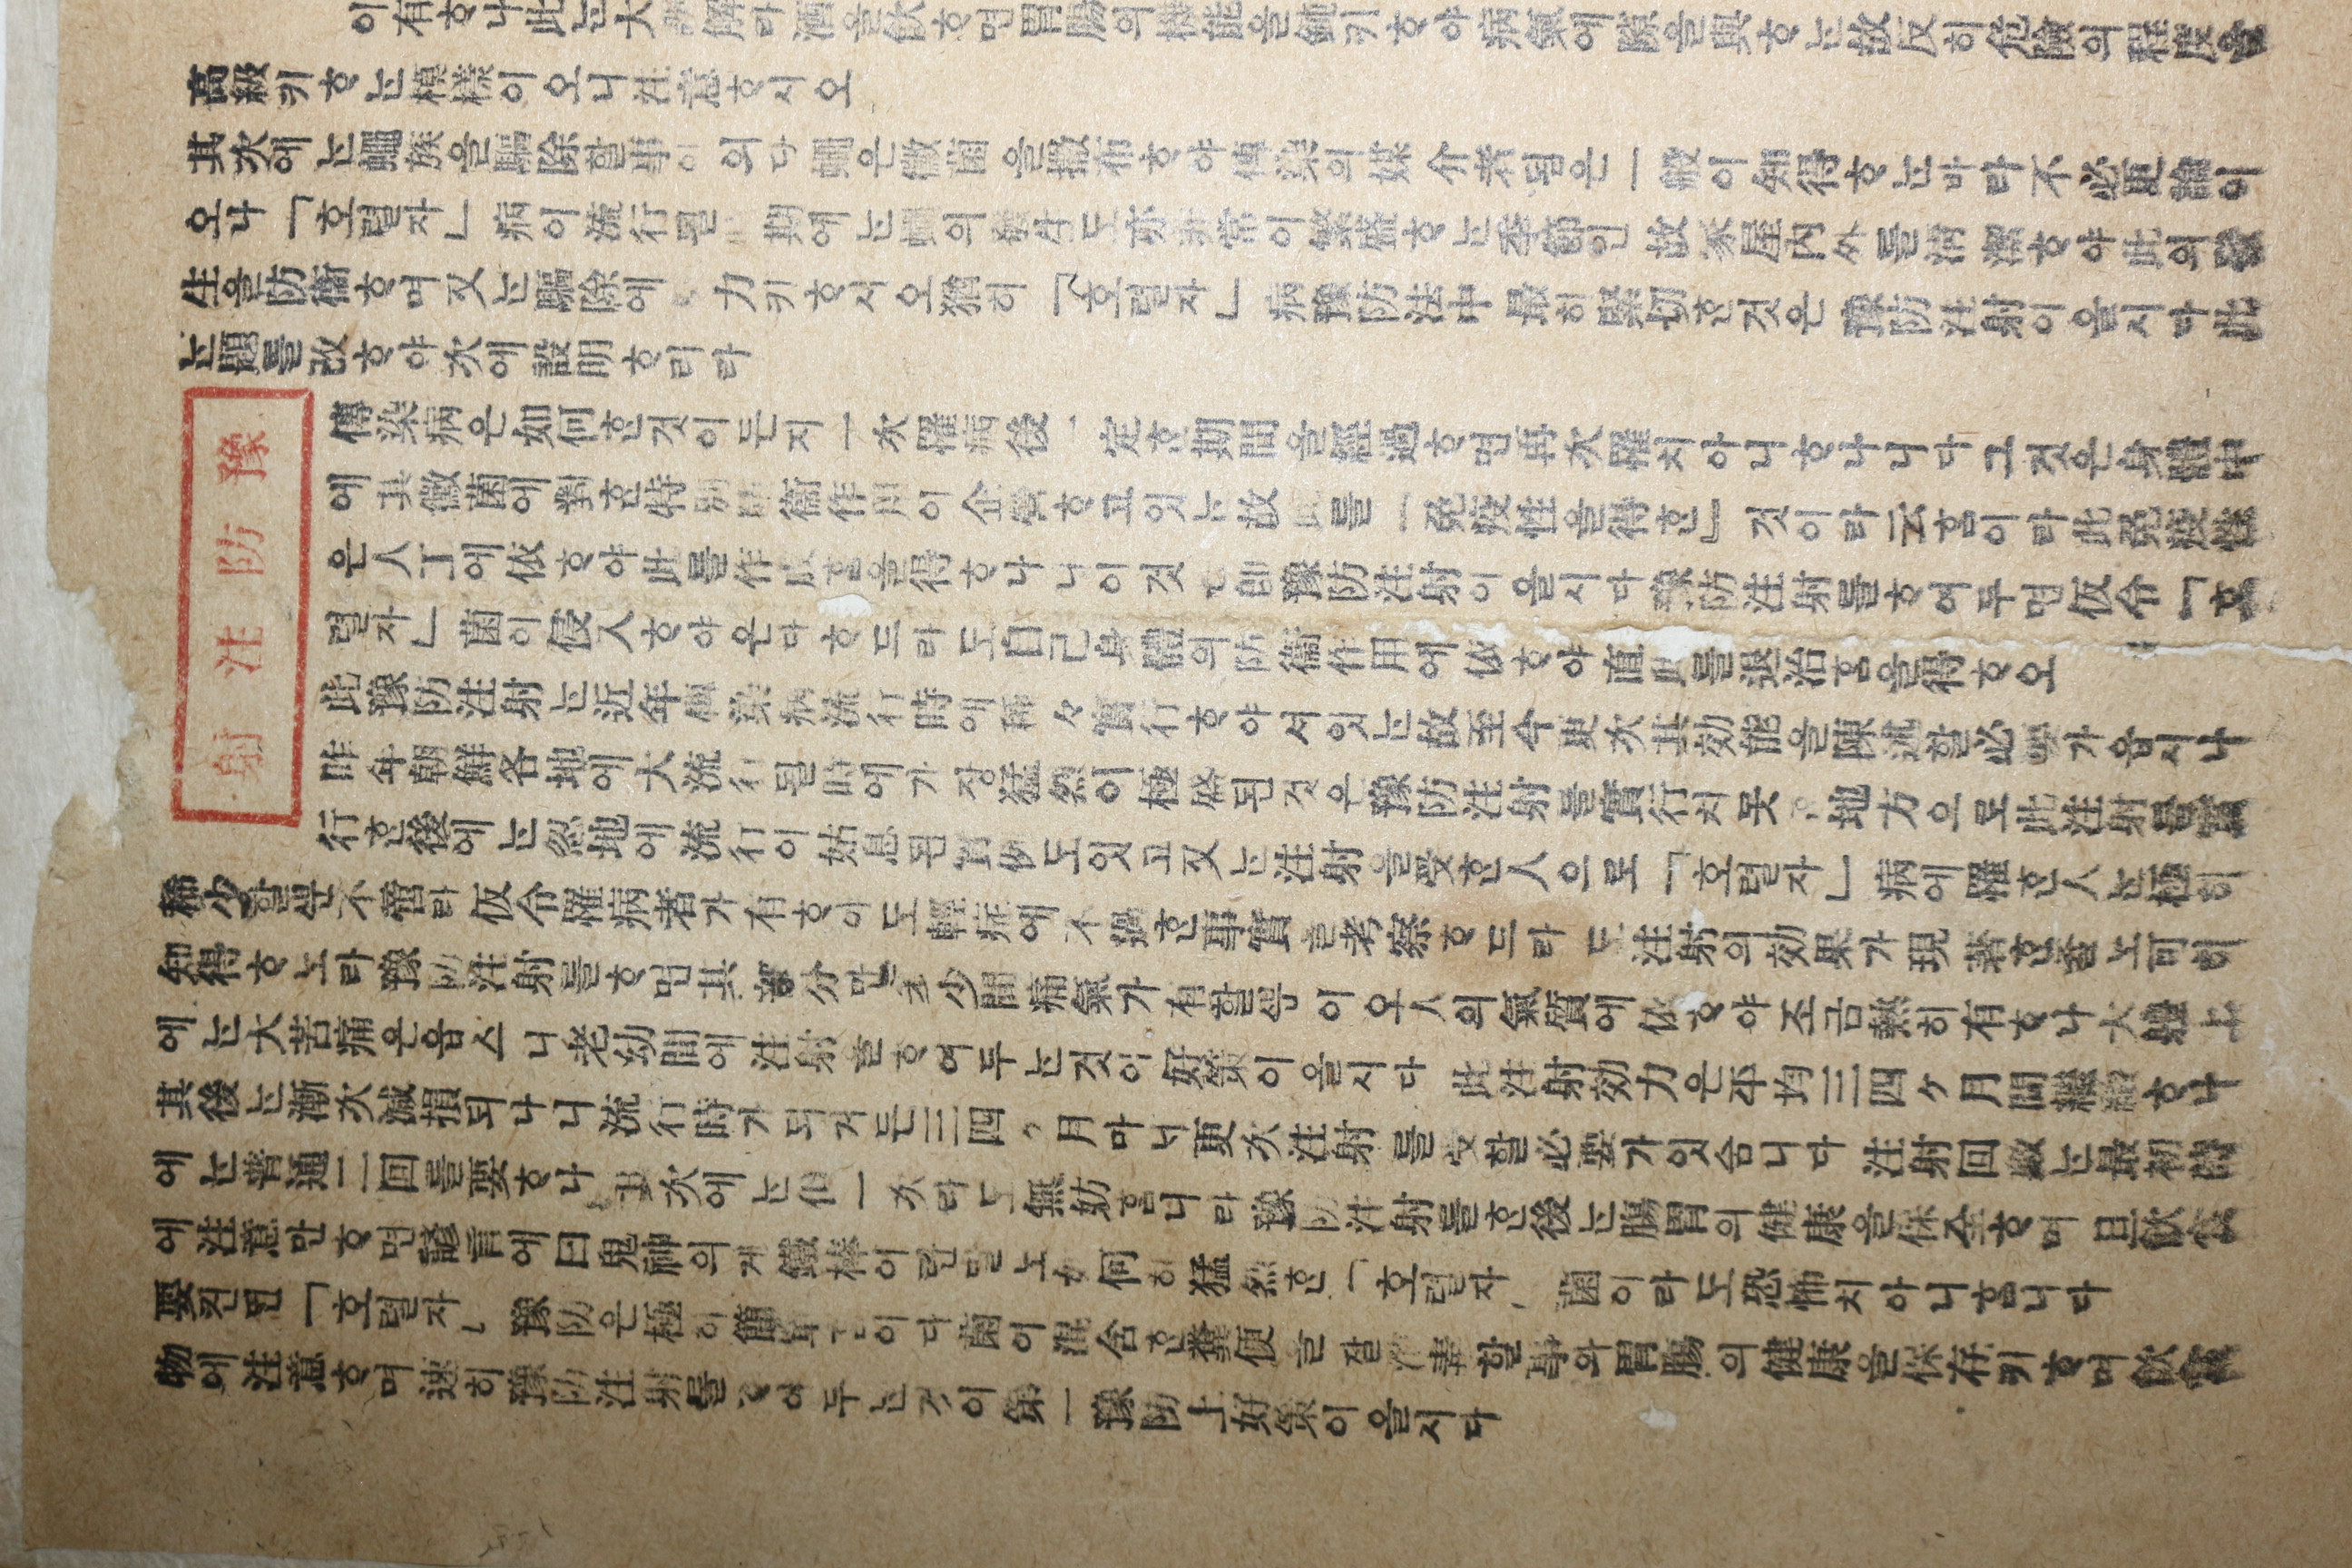 이有ᄒᆞ나此ᄂᆞᆫ大誤解라酒을飮ᄒᆞ면胃腸의機能을鈍키ᄒᆞ야病氣에隙을與ᄒᆞᄂᆞᆫ故反히危險의程度
高級키ᄒᆞᄂᆞᆫ模樣이오니注意ᄒᆞ시오
其次에ᄂᆞᆫ蠅族을驅除ᄒᆞᆯ事이외다蠅은黴菌을撒布ᄒᆞ야傳染의媒介者됨은一般이知得ᄒᆞᄂᆞᆫ바라不必更論이
오나「호렬자」病이流行될 期에ᄂᆞᆫ蠅의發生도亦非常이繁盛ᄒᆞᄂᆞᆫ季節인故家屋內外를淸潔ᄒᆞ야此의發
生을防衛ᄒᆞ며又ᄂᆞᆫ驅除에 力키ᄒᆞ시오猶히「호렬자」病豫防法中最히緊切ᄒᆞᆫ것은豫防注射이올시다此
ᄂᆞᆫ題를改ᄒᆞ야次에說明ᄒᆞ리라
豫防注射
傳染病은如何ᄒᆞᆫ것이든지一次罹病後一定ᄒᆞᆫ期間을經過ᄒᆞ면再次罹치아니ᄒᆞ나니다그것은身體中
에其黴菌에對ᄒᆞᆫ特別防衛作用이企 ᄒᆞ고잇ᄂᆞᆫ故此를「免疫性을得ᄒᆞᆫ」것이라云홈이라此免疫性
은人工에依ᄒᆞ야此를作成홈을得ᄒᆞ나니이것 卽豫防注射이올시다豫防注射를ᄒᆞ여두면仮令「호
렬자」菌이侵入ᄒᆞ야온다ᄒᆞ드라도自己身體의防衛作用에依ᄒᆞ야直此를退治홈을得ᄒᆞ오
此豫防注射ᄂᆞᆫ近年傳染病流行時에種々實行ᄒᆞ야서잇ᄂᆞᆫ故至今更次其効能을陳述ᄒᆞᆯ必要가읍시나
昨年朝鮮各地에大流行될時에가장猛然이極盛된것은豫防注射를實行치못 地方으로此注射를實
行ᄒᆞᆫ後에ᄂᆞᆫ忽地에流行이姑息된實例도잇고又ᄂᆞᆫ注射을受ᄒᆞᆫ人으로「호렬자」病에罹ᄒᆞᆫ人ᄂᆞᆫ極히
稀少ᄒᆞᆯᄲᅮᆫ不啻라仮令罹病者가有ᄒᆞ야도輕症에不過ᄒᆞᆫ事實을考察ᄒᆞ드라도注射의効果가現著ᄒᆞᆫ줄노可히
知得ᄒᆞ노라豫防注射를ᄒᆞ면其部分만 少間痛氣가有ᄒᆞᆯᄲᅮᆫ이오人의氣質에依ᄒᆞ야조금熱히有ᄒᆞ나大體上
에ᄂᆞᆫ大苦痛은읍스니老幼間에注射를ᄒᆞ여두ᄂᆞᆫ것이好策이올시다 此注射効力은平均三四ヶ月間繼續ᄒᆞ나
其後ᄂᆞᆫ漸次減損되나니流行時가되거든三四ヶ月마너更次注射를受ᄒᆞᆯ必要가잇슴니다 注射回數ᄂᆞᆫ最初時
에ᄂᆞᆫ普通二回를要ᄒᆞ나 次에ᄂᆞᆫ但一次라도無妨홈니라豫防注射를ᄒᆞᆫ後ᄂᆞᆫ腸胃의健康을保全ᄒᆞ며且飮食
에注意만ᄒᆞ면諺言에曰鬼神의게鐵棒이란말노如何히猛然ᄒᆞᆫ「호렬자」菌이라도恐怖치아니홈니다
要컨ᄃᆡ「호렬자」豫防은極이簡 이다菌이混合ᄒᆞᆫ糞便을잘消毒ᄒᆞᆯ事와胃腸의健康을保存키ᄒᆞ며飮食
物에注意ᄒᆞ며速히豫防注射를ᄒᆞ여두ᄂᆞᆫ것이第一豫防上好策이올시다